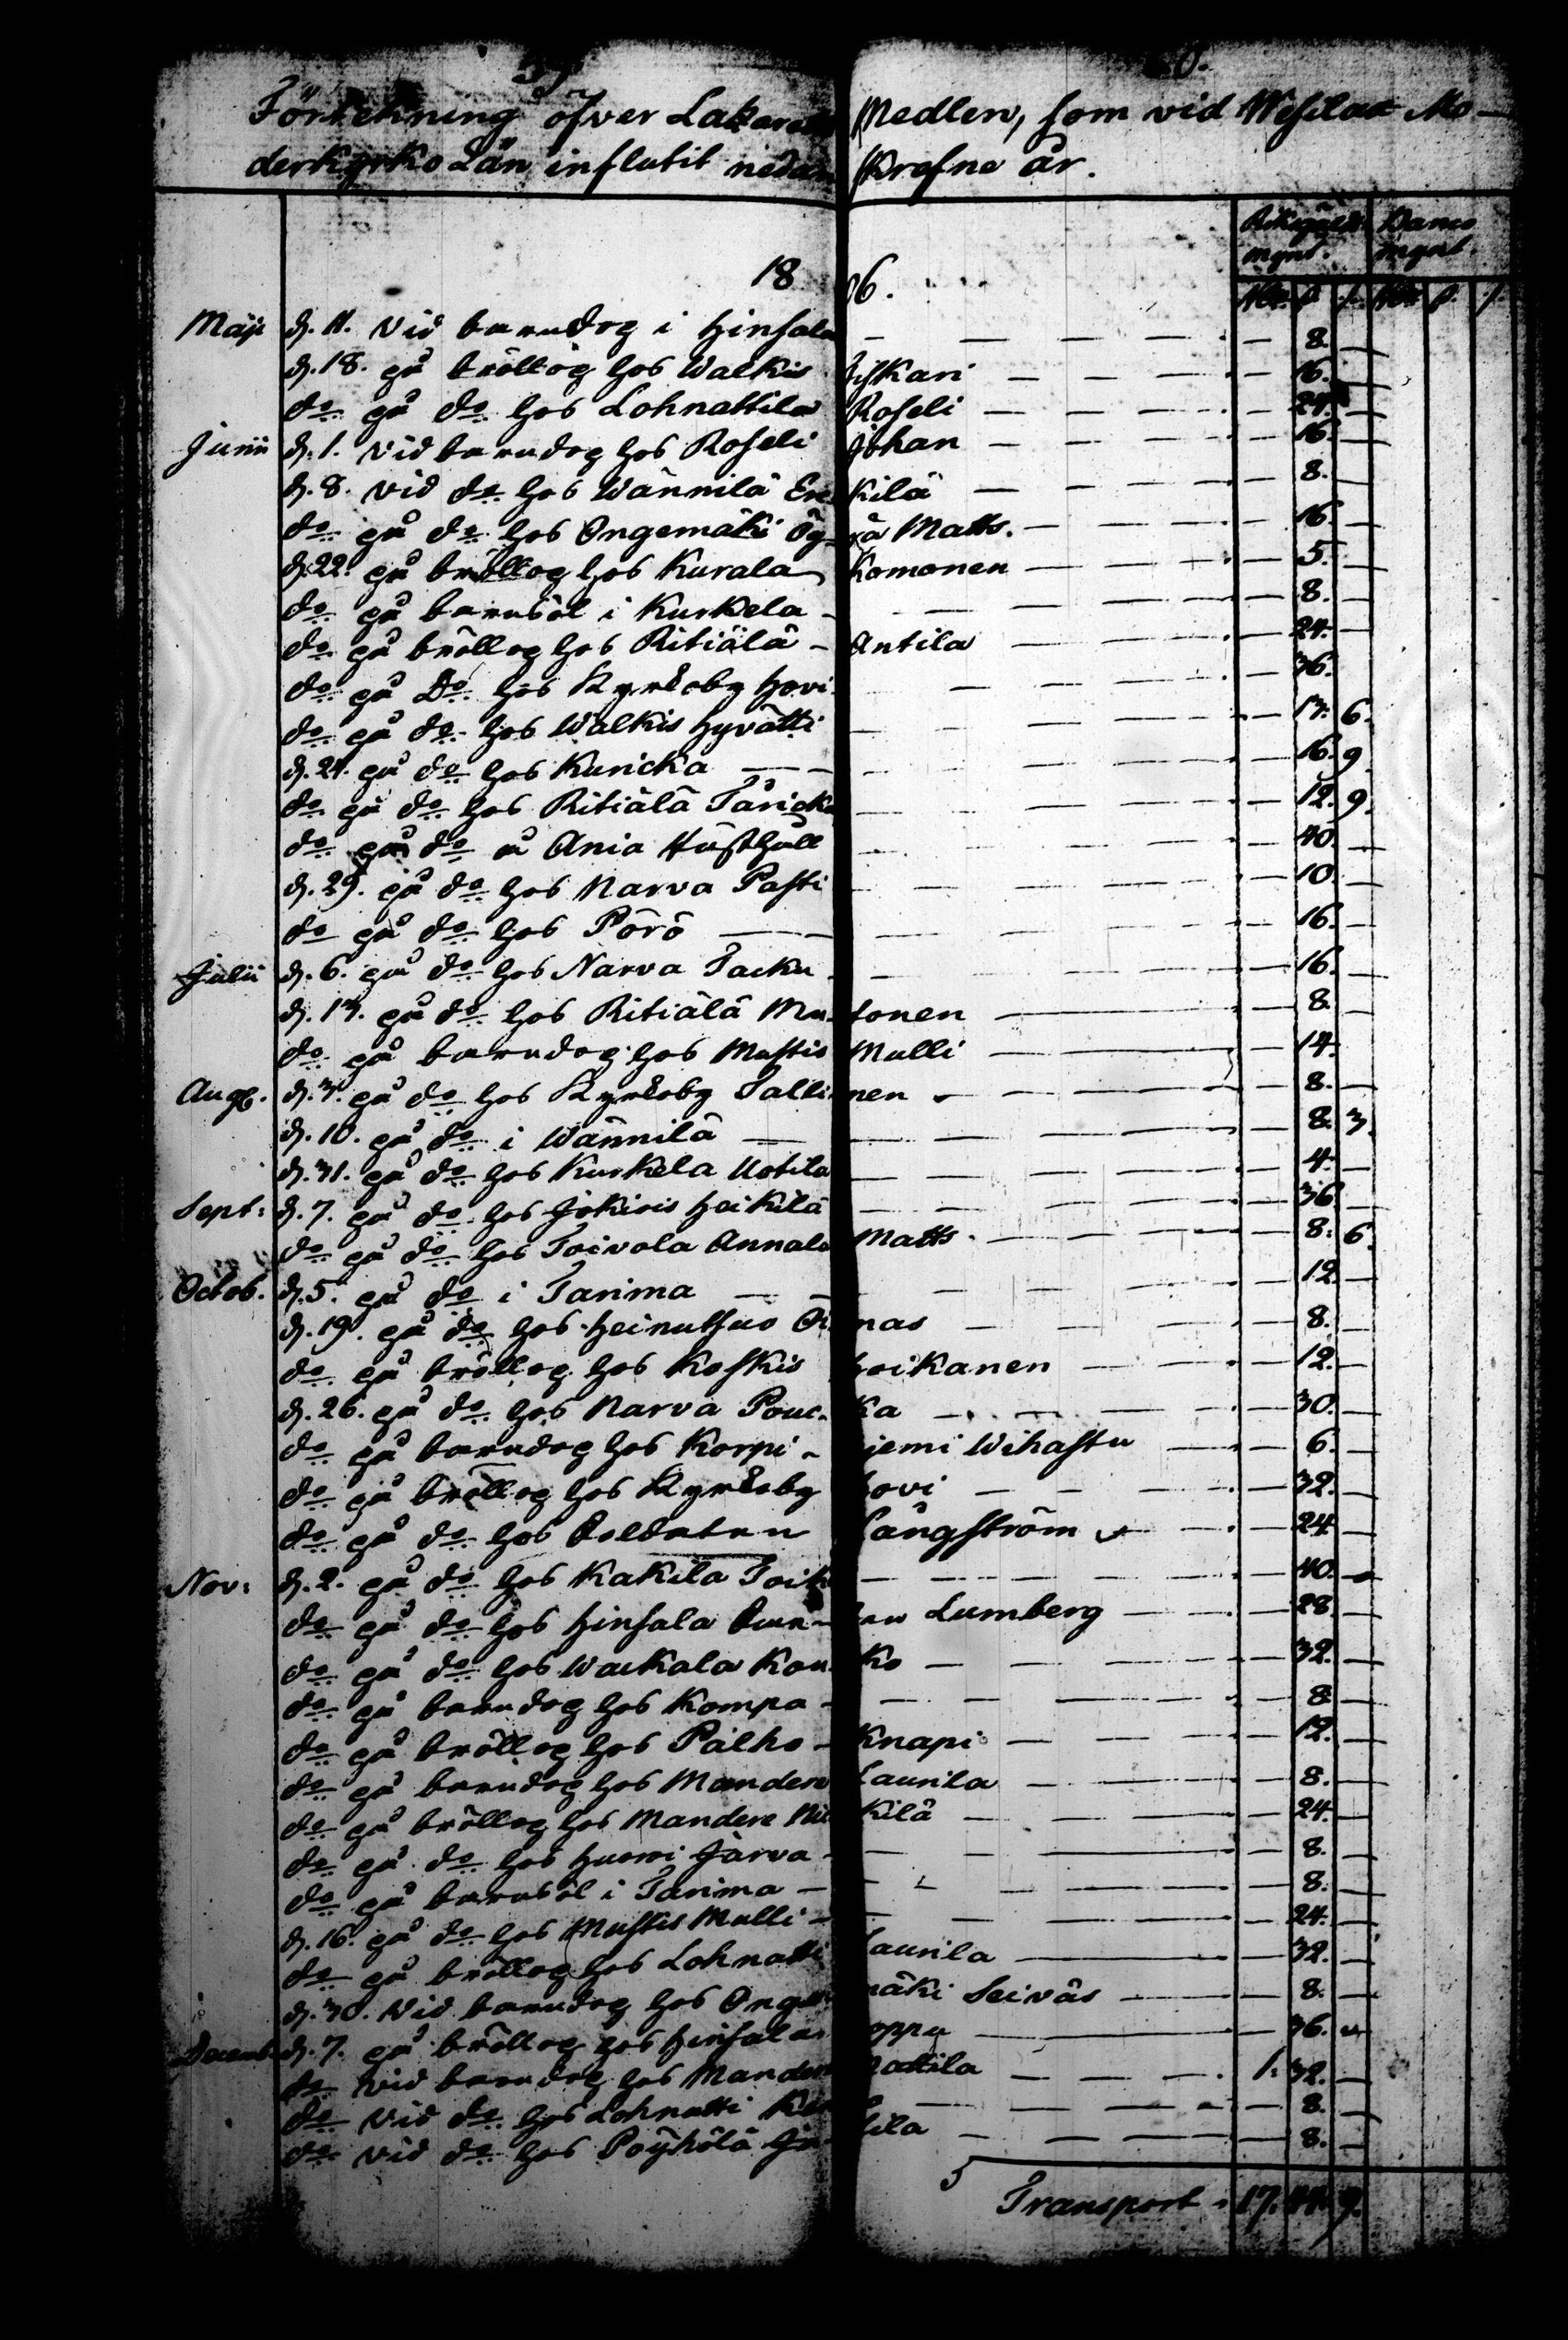 Förtekning öfver Lazaretts Medlen, som vid Wesilax Mo-
derkyrko Län influtit nedanskrefne år.
Riksgälds mynt. Banco mynt.
1806. Rdr. ß. r. Rdr. ß. r.
Maji d. 11. vid barndop i Hinsala — — — 8. —
d. 18. på bröllop hos Walkis Piskari — — — 16. —
do på do hos Lohnattila Roseli — — — 24. —
Junii d. 1. vid barndop hos Roseli Johan — — — 16. —
d. 8. vid do hos Wännilä Erkilä — — — 8. —
do på do hos Ongemäki Öyrä Matts. — — — 16. —
d. 22. på bröllop hos Kurala Komonen — — — 5. —
do på barnsöl i Kurkela — — — 8. —
do på bröllop hos Ritiälä Antila — — — 24. —
do på Do hos Kyrkoby Hovi — — — 36.
do på do hos Walkis Hyvätti — — — 17. 6.
d. 24. på do hos Kuricka — — — 16. 9.
do på do hos Ritiälä Täricka — — — 12. 9.
do på do å Ania Rusthåll — — — 40. —
d. 29. på do hos Narva Pasti — — — 10. —
do på do hos Pörö — — — 16. —
Julii d. 6. på do hos Narva Tacku — — — 16. —
d. 13. på do hos Ritiälä Mutonen — — — 8. —
do på barndop hos Mustis Mulli — — — 14. —
Aug. d. 3. på do hos Kyrkoby Tallinen — — — 8. —
d. 10. på do i Wännilä — — — 8. 3.
d. 31. på do hos Kurkela Uotila — — — 4. —
Sept: d. 7. på do hos Jokiois Heikilä — — — 36. —
do på do hos Toivola Annala Matts. — — — 8. 6.
Octob. d. 5. på do i Tarima — — — 12. —
d. 19. på do hos Heinutsuo — — — 8. —
do på bröllop hos Koskis Hoikanen — — — 12. —
d. 26. på do hos Narva Poucka — — — 30. —
do på barndop hos Korpiniemi Wihastu — — — 6. —
do på bröllop hos Kyrkoby Hovi — — — 32. —
do på do hos Soldaten Långström — — — 24 —
Nov: d. 2. på do hos Kakila — — — 40. —
do på do hos Hinsala Lumberg — — — 28. —
do på do hos Wackala Konko — — — 32. —
do på barndop hos Kompa — — — 8. —
do på bröllop hos Palho Knapi — — — 12. —
do på barndop hos Mandere Laurila — — — 8. —
do på bröllop hos Mandere Nickilä — — — 24. —
do på do hos Huowi Järva — — — 8. —
do på barnsöl i Tarima — — — 8. —
d. 16. på do hos Mustis Mulli — — — 24. —
do på bröllop hos Lohnatti Laurila — — — 32. —
d. 30. vid barndop hos Ongemäki Seiväs — — — 8. —
Decemb. d. 7. på bröllop hos Hinsala — — — 36. —
do vid barndop hos Mandere Mattila — — — 1. 32. —
do vid do hos Lohnatti — — — 8. —
do vid do hos Pöyhölä — — — 8. —
Transport. 17. 44. 9.